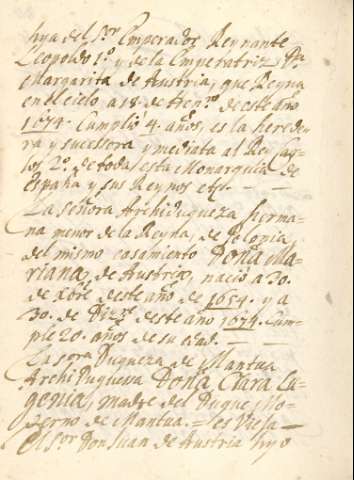 hija del Sor Emperador Reynante
Leopoldo 1o y de la Emperatriz Da
Margarita de Austria, que Reyna
en el cielo a 18 de Henro de este año
1674. Cumplió 4. años, es la herede
ra y sucesora ynmediata al Rey Car
los 2o de toda esta Monarquia de
España y sus Reynos etc. - -
La señora Archiduqueza herma-
na menor de la Reyna, de Polonia,
del mismo casamiento Dona Ma-
riana de Austria, nació a 30.
de Xbre deste año de 1654. y a
30. de Dizre deste año 1674. Cum-
ple 20. años de su edad. - -
La sora Duqueza de Mantua
Archiduquesa Dona Clara Eu-
genia, madre del Duque Mo-
derno de Mantua. - es Vieja -
El Sor Don Juan de Austria hijo